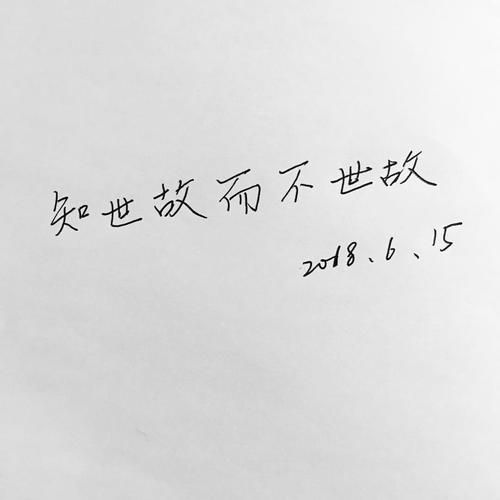 知世故而不世故
2018、6、15